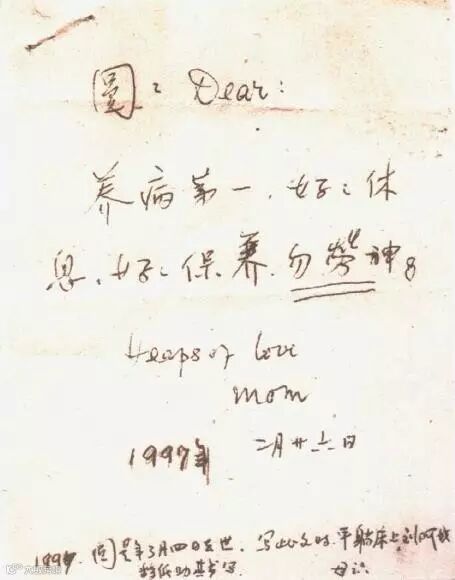 圆: Dear:
养病第一、好:休
息、好:保养、勿劳神。
Heaps of love
Mom
1997年 二月廿六日
1997. 圆是年3月四日去世. 写此文时, 平躺床上
母识